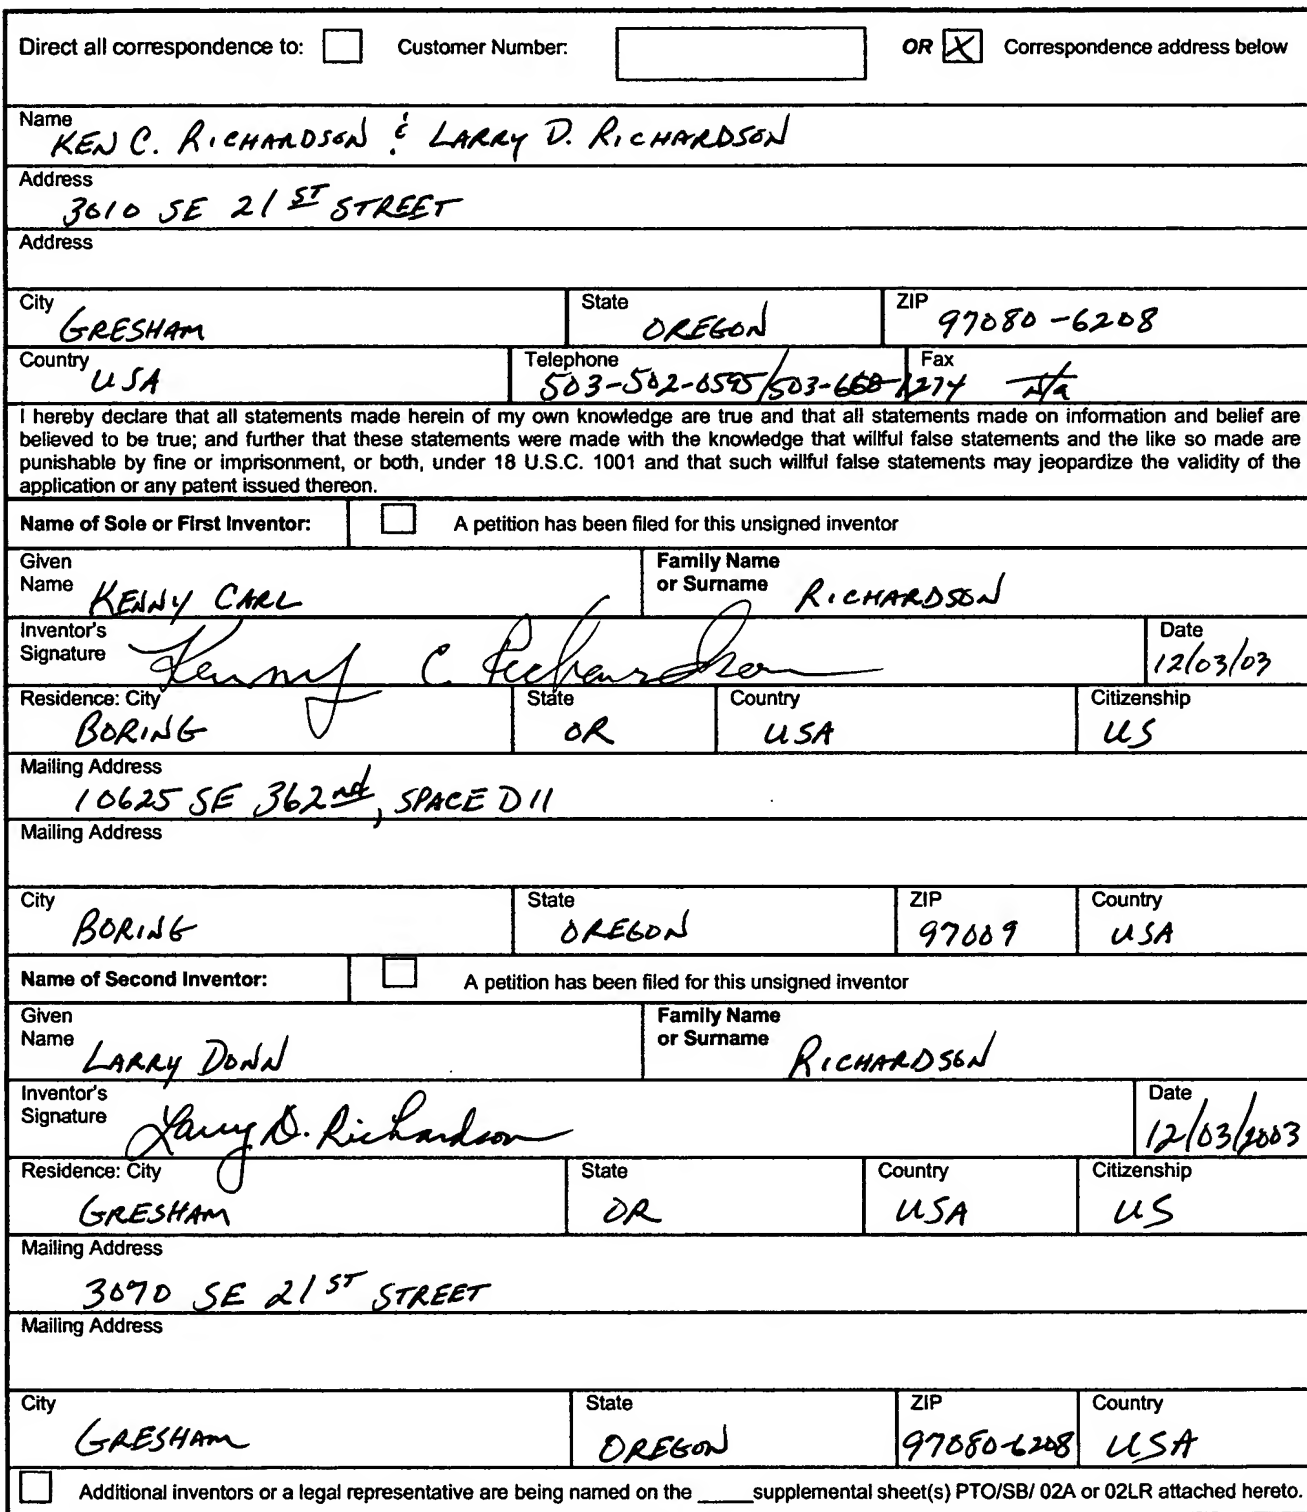 Direct all correspondence to: Customer Number: OR X Correspondence address below
Name
KEN C. RICHARDSON & LARRY D. RICHARDSON
Address
3010 SE 21ST STREET
Address
City State ZIP
GRESHAM OREGON 97080-6208
Country Telephone Fax
USA 503-502-0595/503-668-1274 N/a
I hereby declare that all statements made herein of my own knowledge are true and that all statements made on information and belief are
believed to be true; and further that these statements were made with the knowledge that willful false statements and the like so made are
punishable by fine or imprisonment, or both, under 18 U.S.C. 1001 and that such willful false statements may jeopardize the validity of the
application or any patent issued thereon.
Name of Sole or First Inventor: A petition has been filed for this unsigned inventor
Given Family Name
Name or Surname
KENNY CARL RICHARDSON
Inventor's Date
Signature Kenny C. Richardson 12/03/03
Residence: City State Country Citizenship
BORING OR USA US
Mailing Address
10625 SE 362nd, SPACE D11
Mailing Address
City State ZIP Country
BORING OREGON 97009 USA
Name of Second Inventor: A petition has been filed for this unsigned inventor
Given Family Name
Name or Surname
LARRY DONN RICHARDSON
Inventor's Date
Signature Larry D. Richardson 12/03/2003
Residence: City State Country Citizenship
GRESHAM OR USA US
Mailing Address
3070 SE 21ST STREET
Mailing Address
City State ZIP Country
GRESHAM OREGON 97080-6208 USA
Additional inventors or a legal representative are being named on the _____supplemental sheet(s) PTO/SB/ 02A or 02LR attached hereto.